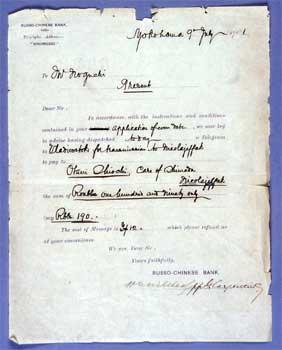 RUSSO-CHINESE BANK.
Telegraphic Address:—
Yokohama 9th July 1901
To Mr Noguchi
Present
Dear Sir
In accordance with the instructions and conditions
contained in your application of even date, we now beg
to advise having despatched to-day a telegram
Wladiwostok for transmission to Nicolajeffsk
to pay to
Otani Care of Shimada
Nicolajeffsk
the sum of Roubles one hundred and ninety only
(say Rbls 190.—
The cost of Message is which please refund us
at your convenience
We are, Dear Sir,
Yours faithfully,
RUSSO-CHINESE BANK.